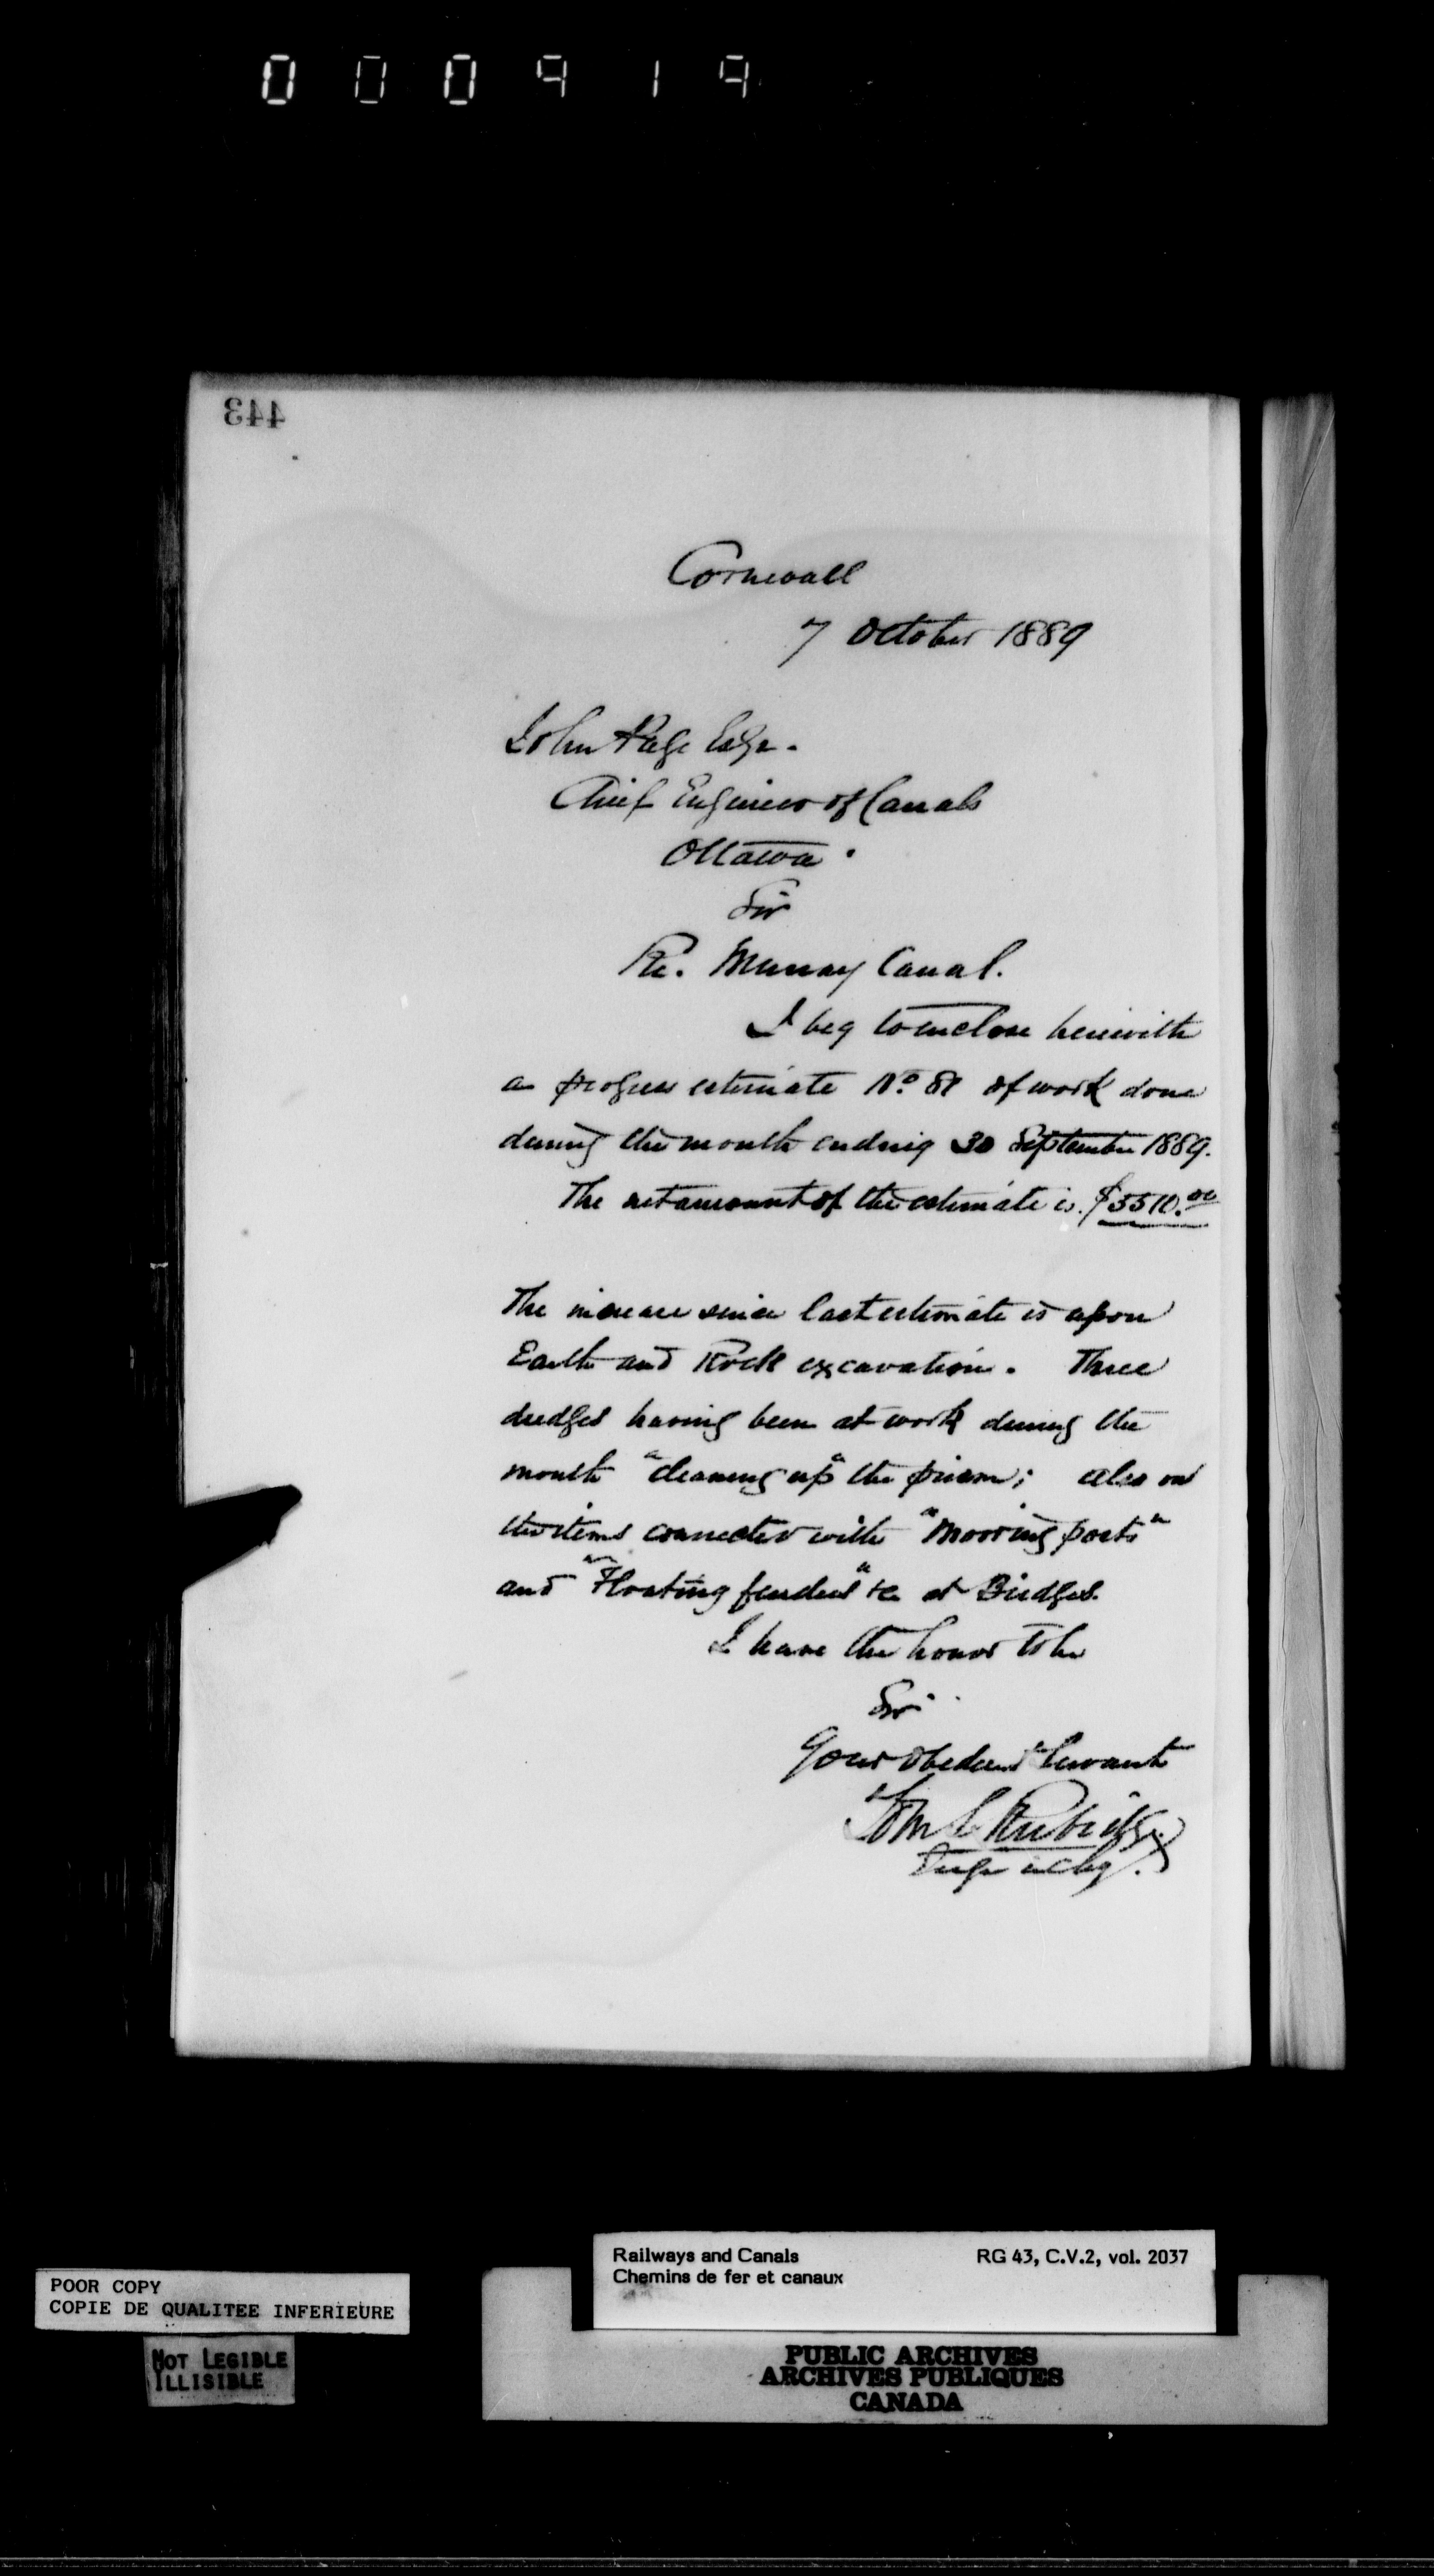 000919
443
Cornwall
7 October 1889
John Page Esqr.
Chief Engineer of Canals
Ottawa.
Sir
Re. Murray Canal.
I beg to enclose herewith
a progress estimate No. of work done
during the month ending 30 September 1889.
The net amount of the estimate is $5510.00
The increase since last estimate is upon
Earth and Rock excavation. Three
dredges having been at work during the
month "cleaning up" the prism; also on
the items connected with "Mooring posts"
and "Floating fenders" &c at Bridges.
I have the honor to be
Sir
Your obedient Servant
Tom S Rubidge
Engr in chg.
Railways and Canals RG 43, C.V.2, vol. 2037
Chemins de fer et canaux
POOR COPY
COPIE DE QUALITEE INFERIEURE
NOT LEGIBLE
ILLISIBLE
PUBLIC ARCHIVES
ARCHIVES PUBLIQUES
CANADA